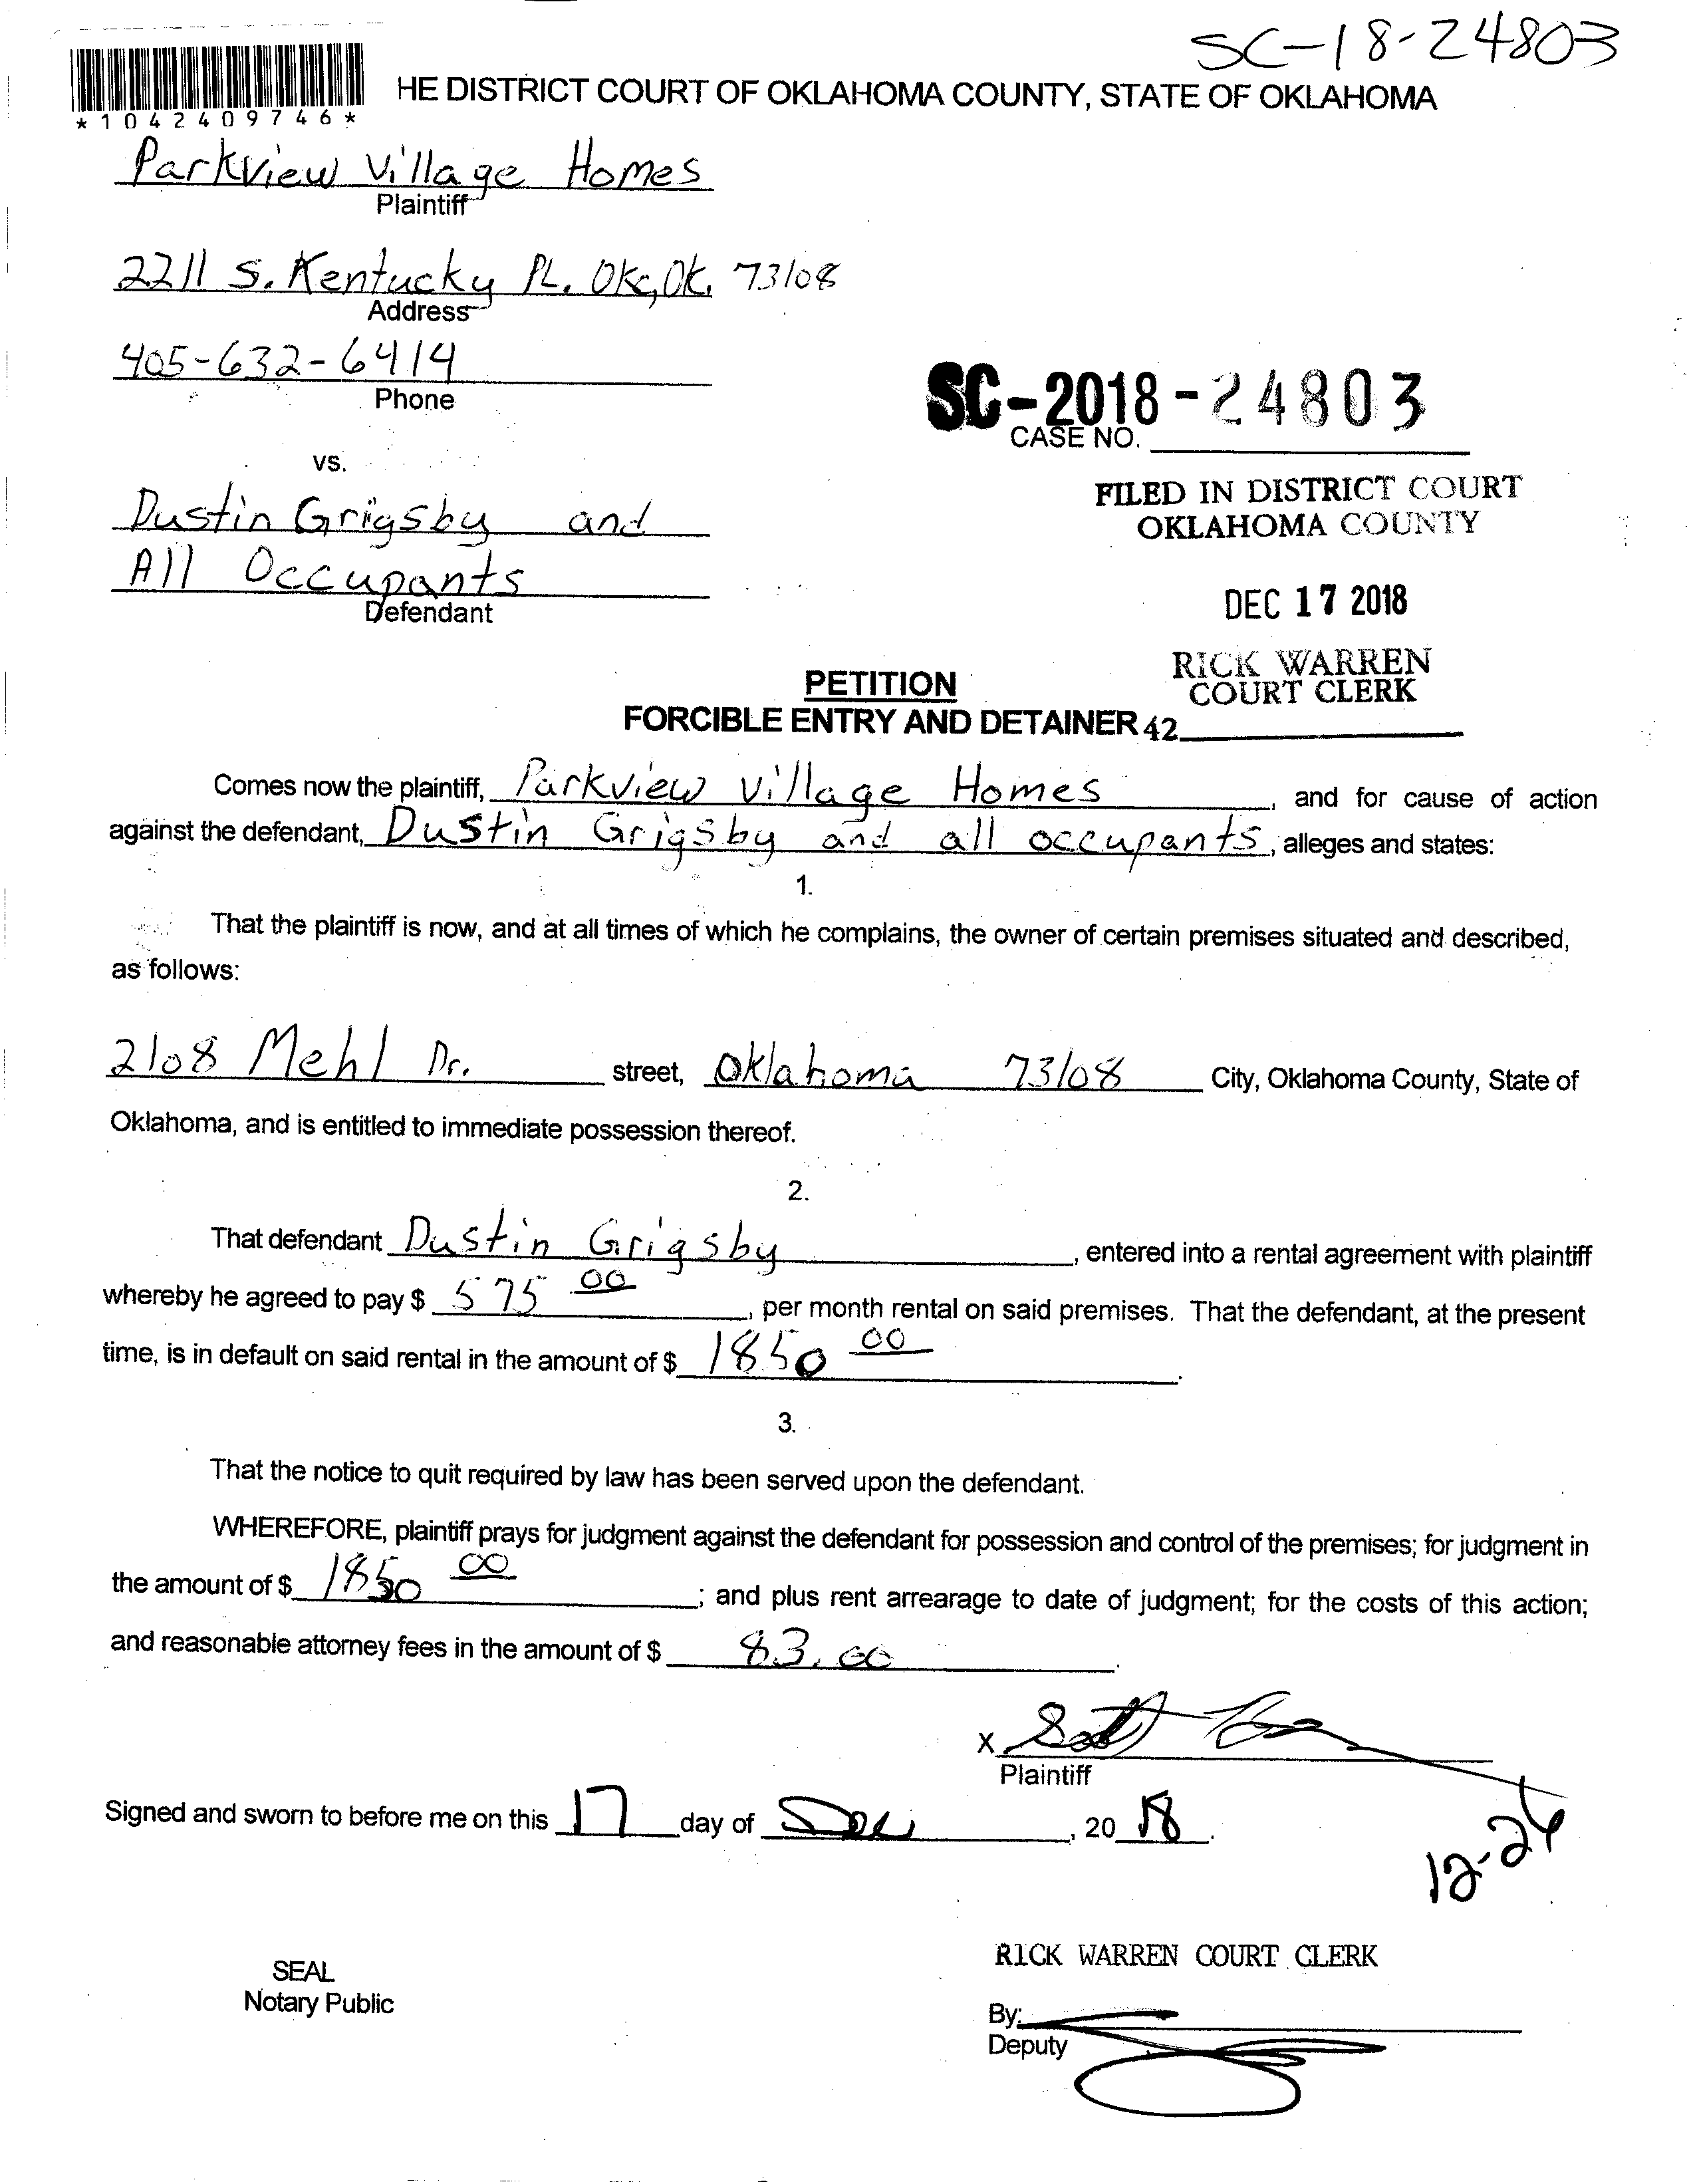 SC-18-24803
HE DISTRICT COURT OF OKLAHOMA COUNTY, STATE OF OKLAHOMA
*1042409746*
Parkview Village Homes
Plaintiff
2211 S. Kentucky PL. OKC, OK. 73108
Address
405-632-6414
Phone
SC-2018-24803
CASE NO.
vs.
FILED IN DISTRICT COURT
OKLAHOMA COUNTY
Dustin Grigsby and
All Occupants
Defendant
DEC 17 2018
RICK WARREN
COURT CLERK
PETITION
FORCIBLE ENTRY AND DETAINER 42
Comes now the plaintiff, Parkview Village Homes, and for cause of action
against the defendant, Dustin Grigsby and all occupants, alleges and states:
1.
That the plaintiff is now, and at all times of which he complains, the owner of certain premises situated and described,
as follows:
2108 Mehl Dr. street, Oklahoma 73108 City, Oklahoma County, State of
Oklahoma, and is entitled to immediate possession thereof.
2.
That defendant Dustin Grigsby, entered into a rental agreement with plaintiff
whereby he agreed to pay $ 575 00, per month rental on said premises. That the defendant, at the present
time, is in default on said rental in the amount of $ 1850 00.
3.
That the notice to quit required by law has been served upon the defendant.
WHEREFORE, plaintiff prays for judgment against the defendant for possession and control of the premises; for judgment in
the amount of $ 1850 00; and plus rent arrearage to date of judgment; for the costs of this action;
and reasonable attorney fees in the amount of $ 83.00.
X
Plaintiff
Signed and sworn to before me on this 17 day of Dec, 20 18.
12-26
RICK WARREN COURT CLERK
SEAL
Notary Public
By:
Deputy